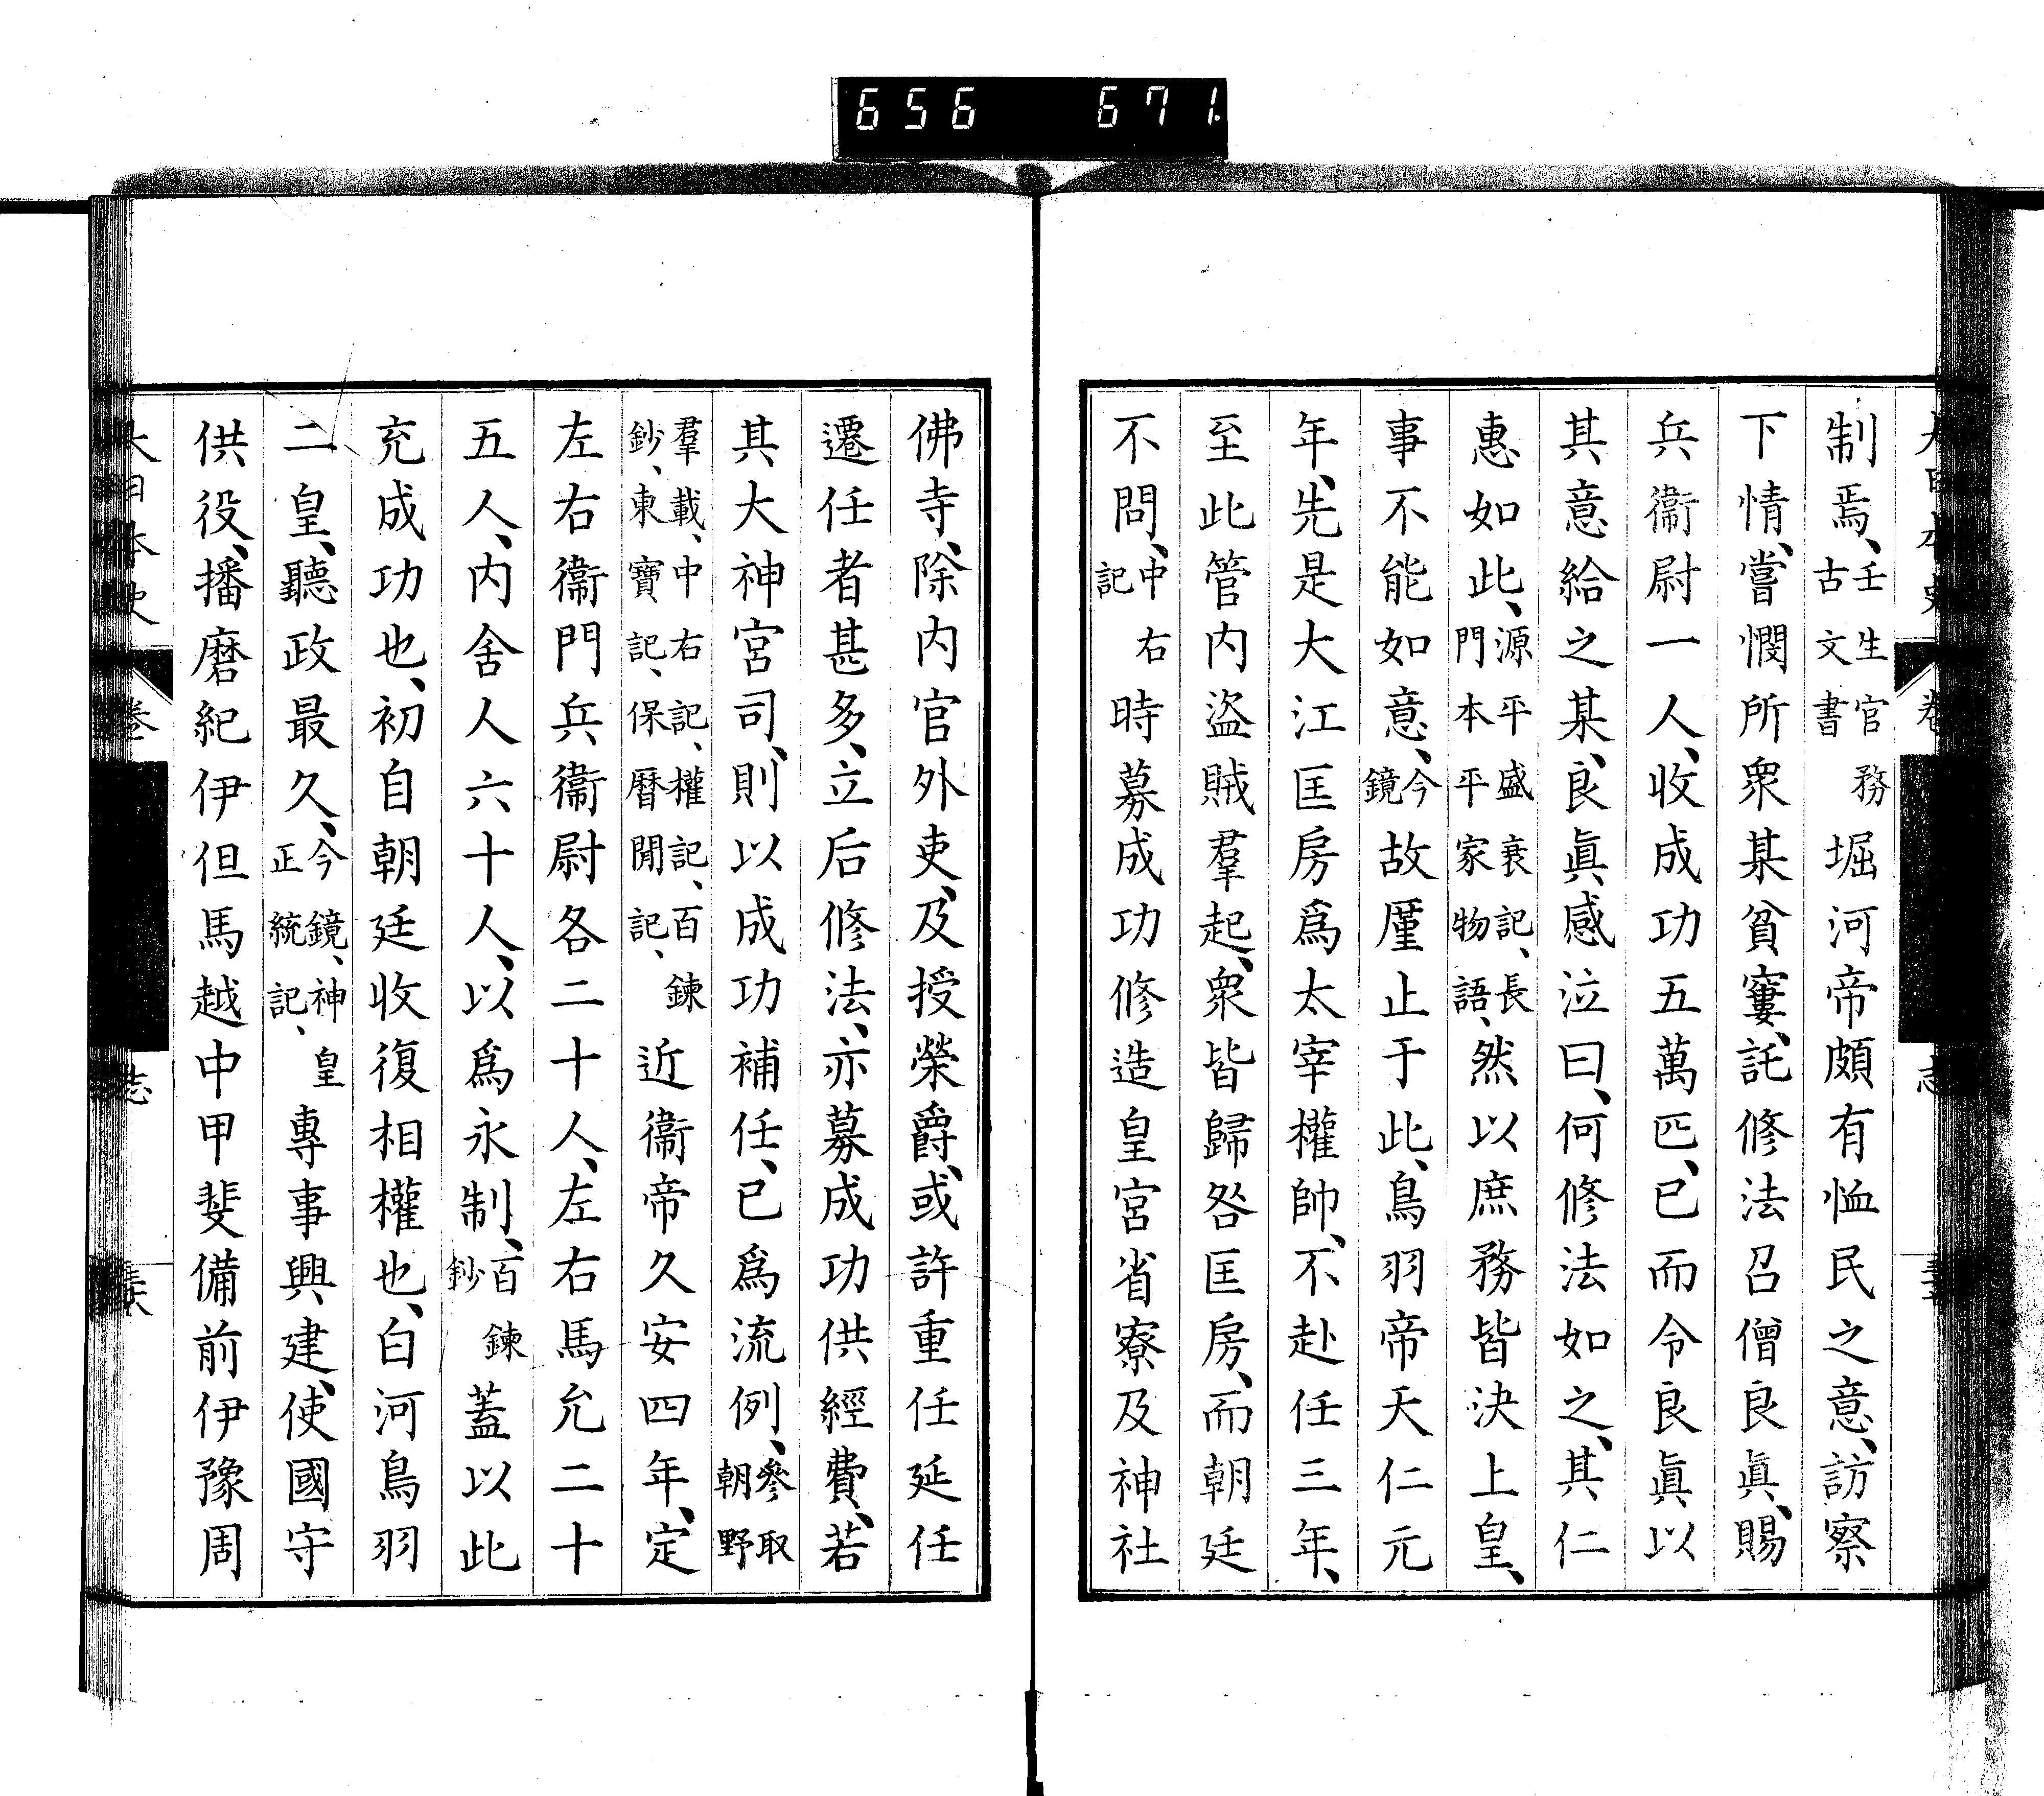 656 671.
制焉、壬生官務古文書堀河帝頗有恤民之意、訪察
下情、嘗憫所衆某貧窶、託修法召僧良眞、賜
兵衞尉一人、收成功五萬匹、已而令良眞以
其意給之某、良眞感泣曰、何修法如之、其仁
惠如此、源平盛衰記、長門本平家物語、然以庶務皆決上皇、
事不能如意、今鏡故厪止于此、鳥羽帝天仁元
年、先是大江匡房爲太宰權帥、不赴任三年、
至此管内盜賊羣起、衆皆歸咎匡房、而朝廷
不問、中右記時募成功修造皇宮省寮及神社
佛寺、除内官外吏、及授榮爵、或許重任延任
遷任者甚多、立后修法、亦募成功供經費、若
其大神宮司、則以成功補任、已爲流例、參取朝野
羣載、中右記、權記、百鍊鈔、東寶記、保曆閒記、近衞帝久安四年、定
左右衞門兵衞尉各二十人、左右馬允二十
五人、内舍人六十人、以爲永制、百鍊鈔蓋以此
充成功也、初自朝廷收復相權也、白河鳥羽
二皇、聽政最久、今鏡、神皇正統記、專事興建、使國守
供役、播磨紀伊但馬越中甲斐備前伊豫周
大日本史 卷 志